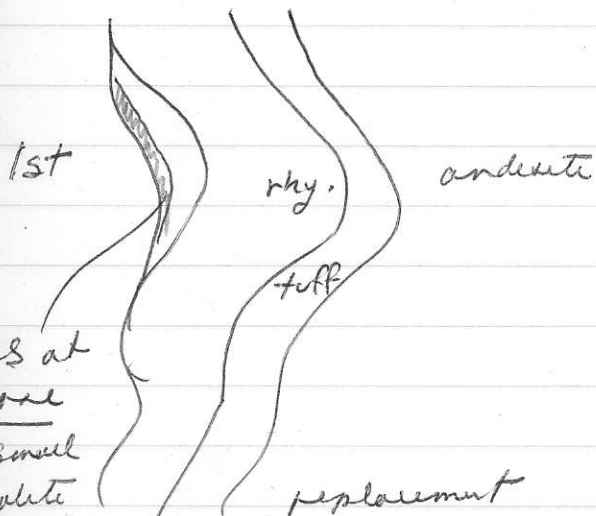 1st
rhy.
andesite
tuff
s at
small
replacement